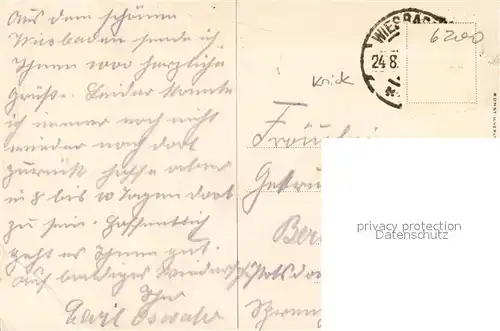 Aus dem schönen
Wiesbaden sende ich
Ihnen 1000 herzliche
Grüße. Leider konnte
ich immer noch nicht
wieder nach dort
zurück hoffe aber
in 8 bis 10 Tagen dort
zu sein. Hoffentlich
geht es Ihnen gut.
Auf baldiges Wiedersehn
Ihr
Carl Oswald
WIESBAD
24.8.
6200
Krick
Fräulein
Ber
privacy protection
Datenschutz